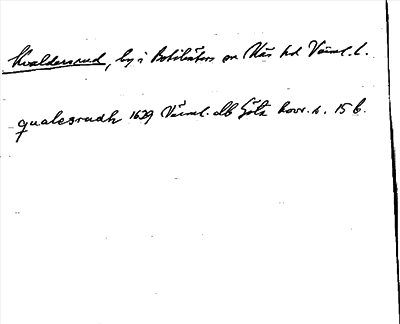 Kvaldersrud, by i Botilsäters sn Näs hd Värml. l.
qualesrudh 1629 Värml. älb Göta kovr. h. 15 b.